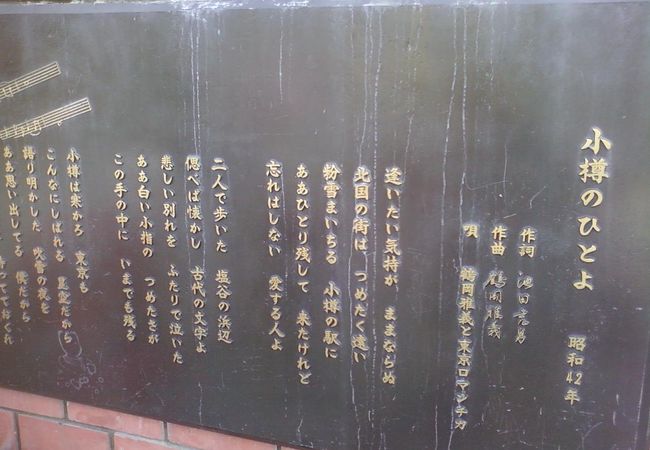 小樽のひとよ 昭和42年
作詞 池田充男
作曲 鶴岡雅義
唄 鶴岡雅義と東京ロマンチカ
逢いたい気持が ままならぬ
北国の街は つめたく遠い
粉雪まいちる 小樽の駅に
ああひとり残して 来たけれど
忘れはしない 愛する人よ
二人で歩いた 塩谷の浜辺
偲べば懐かし 古代の文字よ
悲しい別れを ふたりで泣いた
ああ白い小指の つめたさが
この手の中に いまでも残る
小樽は寒かろ 東京も
こんなにしばれる 星空だから
語り明かした 吹雪の夜を
ああ思い出してる 僕だから
待ってておくれ